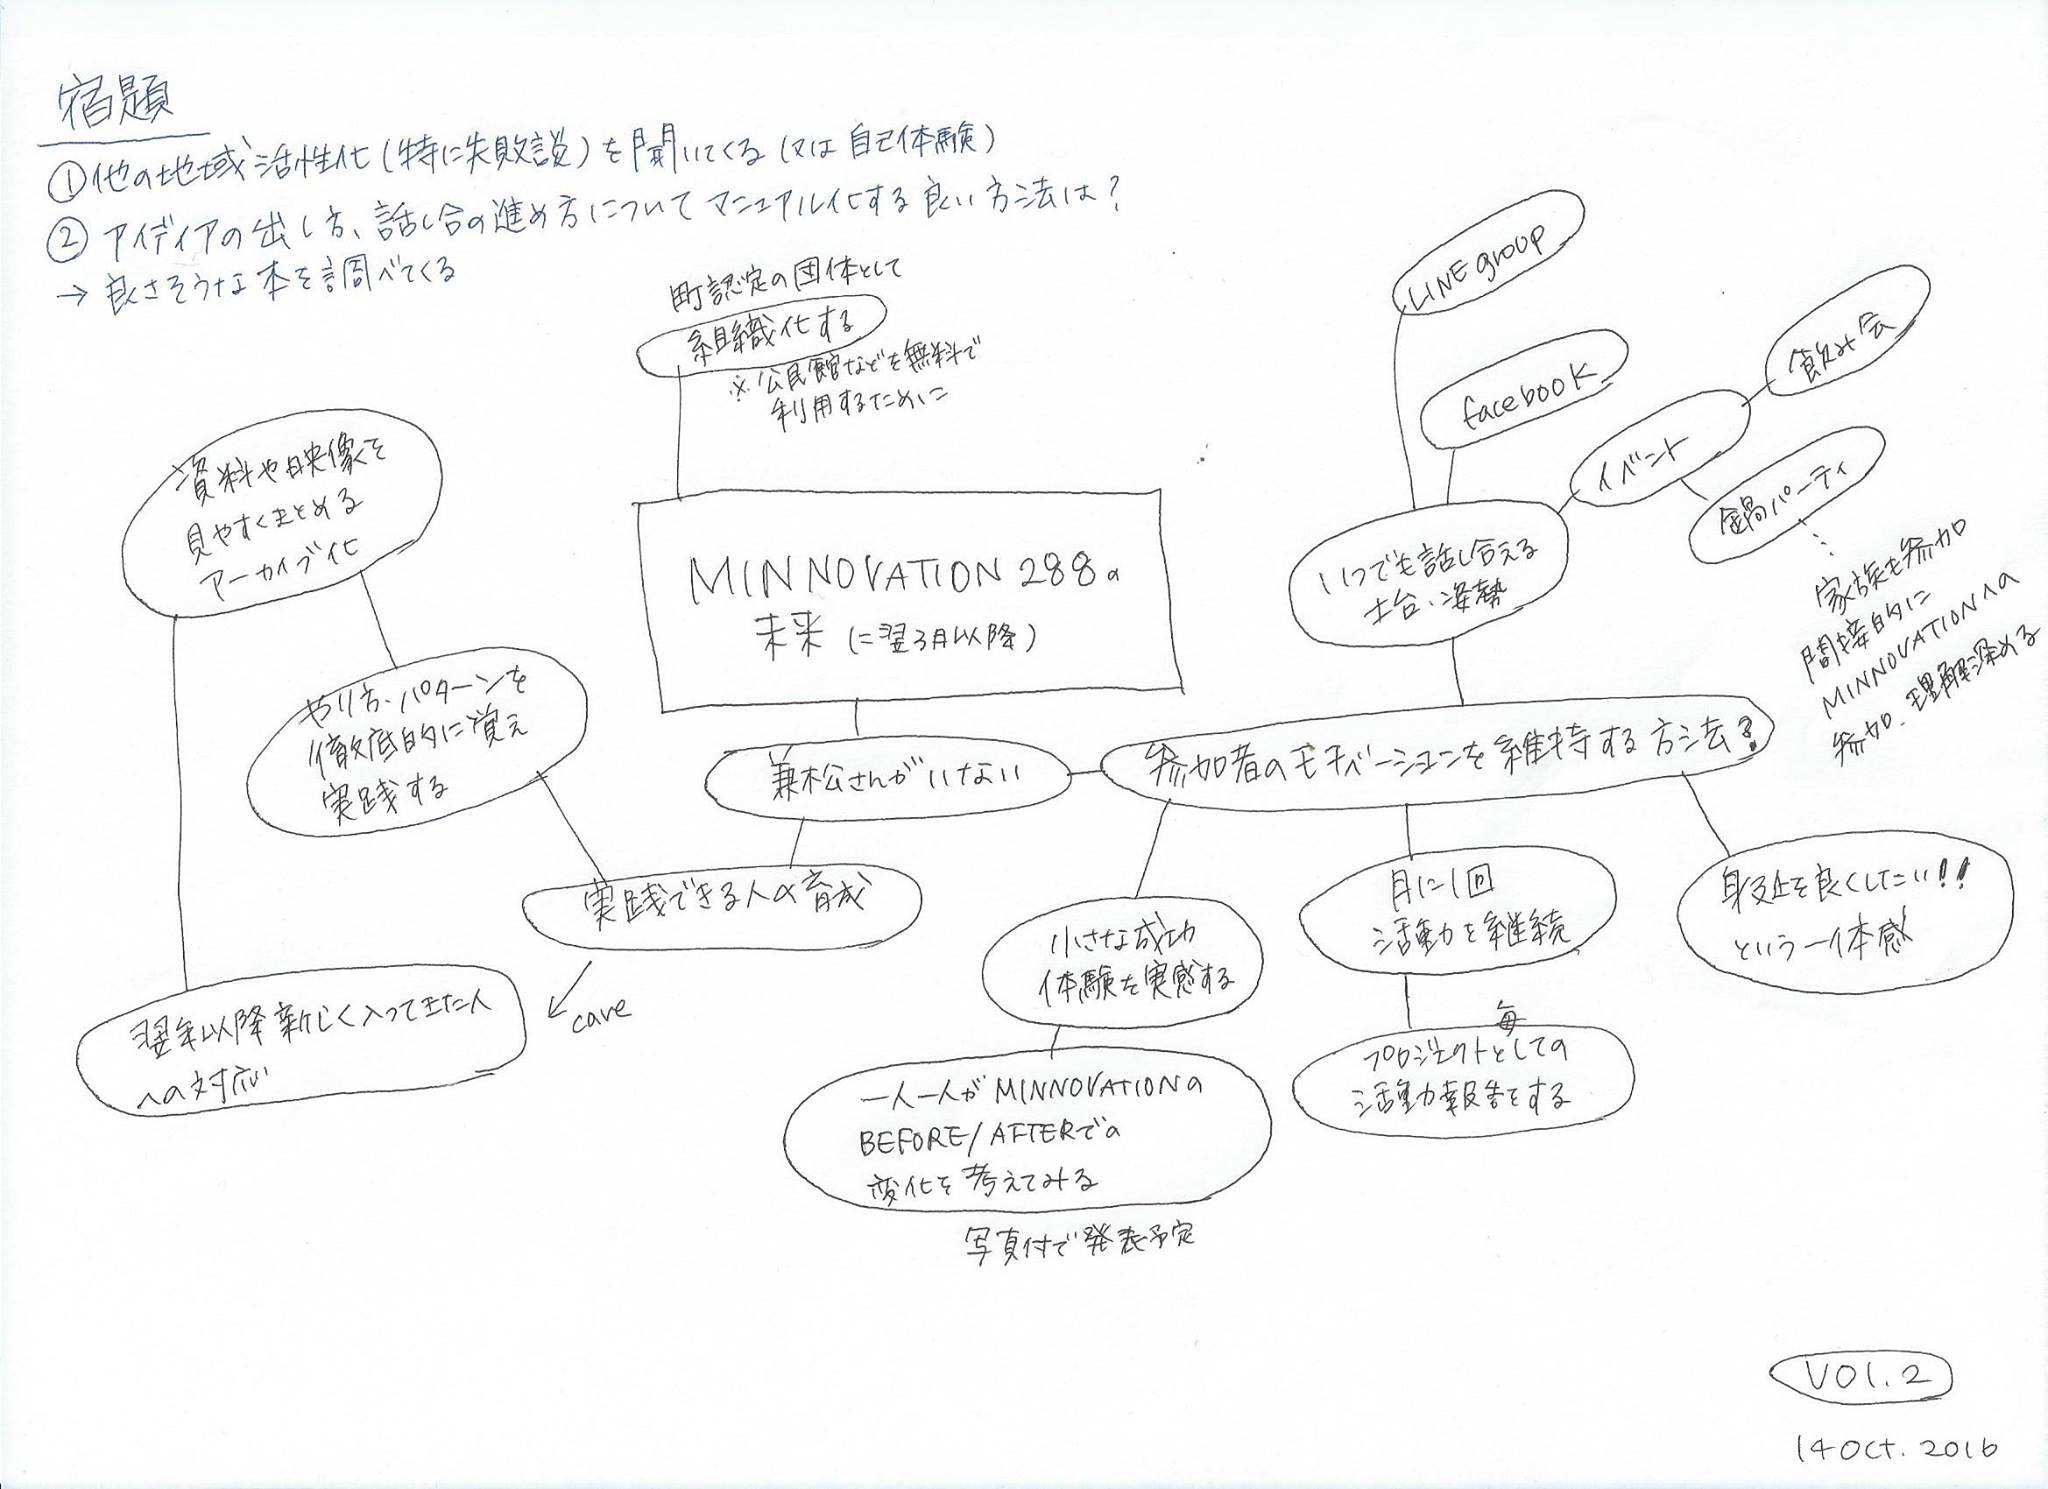 宿題
①他の地域活性化(特に失敗談)を聞いてくる(又は自己体験)
②アイディアの出し方、話し合の進め方についてマニュアル化する良い方法は?
→良さそうな本を調べてくる
町認定の団体として
組織化する
※公民館などを無料で
利用するために
MINNOVATION 288の
未来(に翌3月以降)
兼松さんがいない
実践できる人の育成
care
やり方、パターンを
徹底的に覚え
実践する
資料や映像を
見やすくまとめる
アーカイブ化
翌年以降新しく入ってきた人
への対応
参加者のモチベーションを維持する方法?
いつでも話し合える
土台、姿勢
LINE group
facebook
イベント
飲み会
鍋パーティ
家族も参加
間接的に
MINNOVATIONへの
参加、理解深める
小さな成功
体験を実感する
一人一人がMINNOVATIONの
BEFORE/AFTERでの
変化を考えてみる
写真付で発表予定
月に1回
活動を継続
毎
プロジェクトとしての
活動報告をする
を良くしたい!!
という一体感
VOl.2
14 Oct. 2016